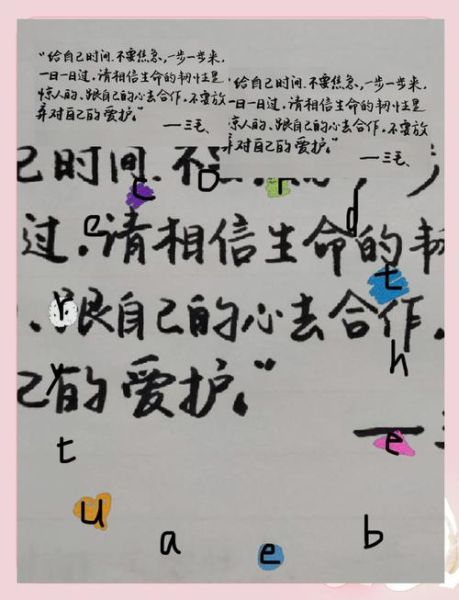 "给自己时间.不要焦急,一步一步来,
一日一过,请相信生命的韧性是
惊人的、跟自己的心去合作,不要放
弃对自己的爱护。"
——三毛、
给自己时间.不要焦急,一步一步来,
一日一过,请相信生命的韧性是
京人的、跟自己的心去合作,不要放
弃对自己的爱护。"
——三毛、
己时间.不
过,请相信生命的韧
、跟自己的心去合作,
己的爱护。"
c o r
e d
t
Y
h
y
e
t
u
a e b